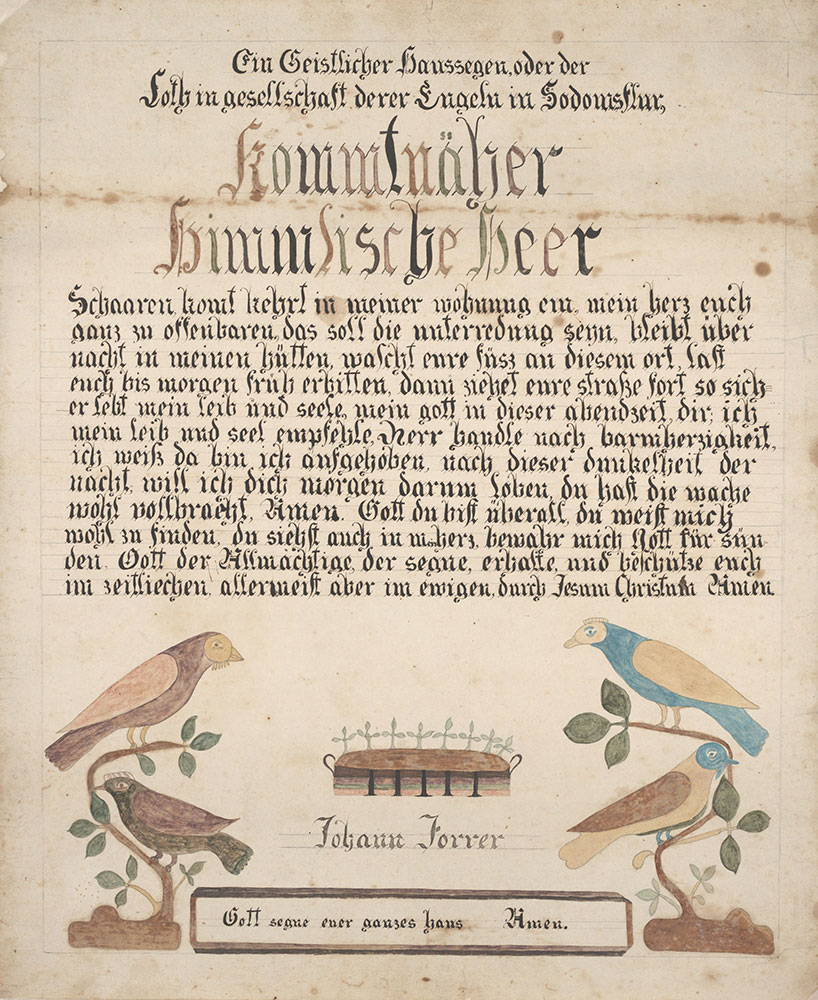 Ein Geistlicher Haussegen, oder der
Loth in gesellschaft derer Engeln in Sodomsflur,
Kommt näher
Himmlische Heer
Schaaren, komt kehrt in meiner wohnung ein, mein herz euch
ganz zu offenbaren, das soll die unterredung seyn, bleibt über
nacht in meinen hütten, wascht eure füsz an diesem ort, last
euch bis morgen früh erbitten, dann ziehet eure straße fort so sich
er lebt mein leib und seele, mein gott in dieser abendzeit, dir, ich
mein leib und seel empfehle, Herr handle nach barmherzigkeit,
ich weiß da bin ich aufgehoben, nach dieser dunkelheit der
nacht, will ich dich morgen darum loben, du hast die wache
wohl vollbracht, Amen. Gott du bist überall, du weist mich
wohl zu finden, du siehst auch in m. herz, bewahr mich Gott für sün
den. Gott der Allmächtige, der segne, erhalte, und beschütze euch
im zeitliechen, allermeist aber im ewigen, durch Jesum Christum Amen
Johann Forrer
Gott segne euer ganzes haus Amen.